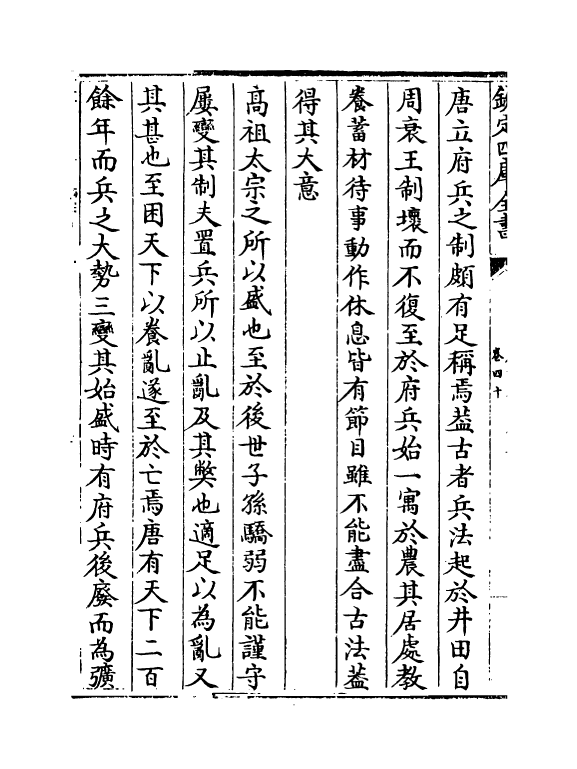 欽定四庫全書
卷四十
唐立府兵之制頗有足稱焉葢古者兵法起於井田自
周衰王制壞而不復至於府兵始一寓於農其居處教
養蓄材待事動作休息皆有節目雖不能盡合古法葢
得其大意
髙祖太宗之所以盛也至於後世子孫驕弱不能謹守
屢變其制夫置兵所以止亂及其弊也適足以為亂又
其甚也至困天下以養亂遂至於亡焉唐有天下二百
餘年而兵之大勢三變其始盛時有府兵後廢而為彍